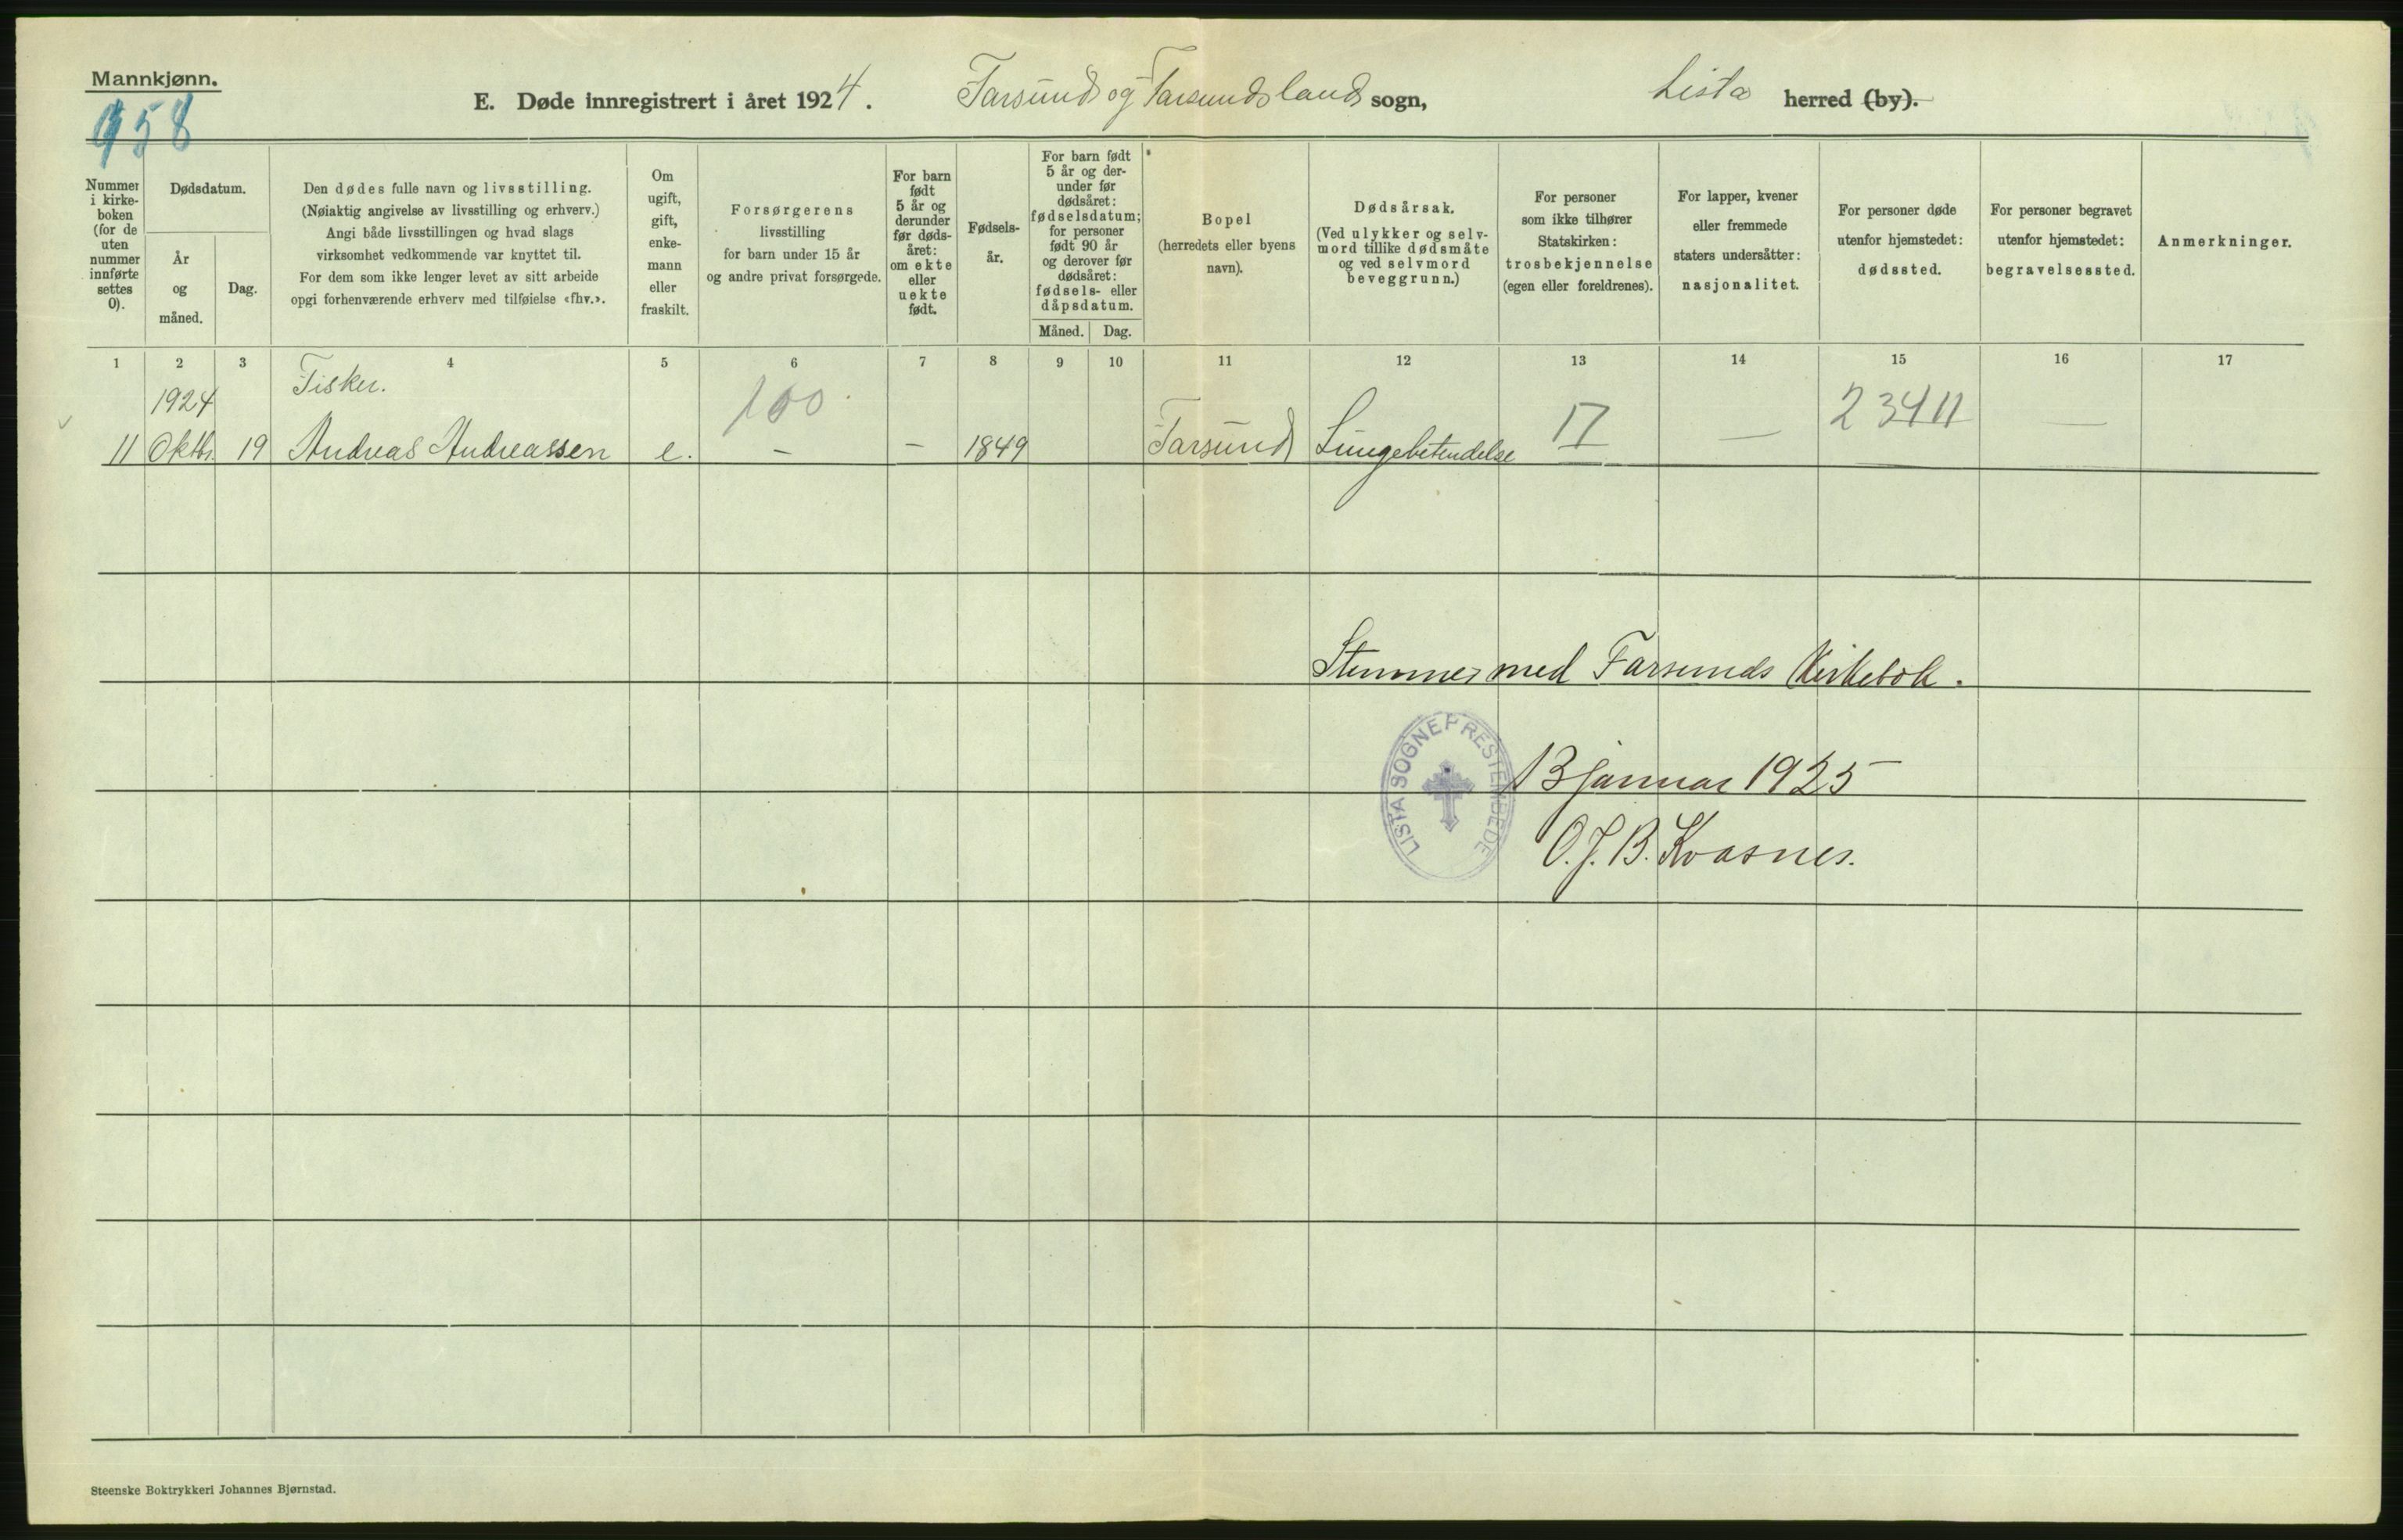 Mannkjønn.
958
E. Døde innregistrert i året 1924. Farsunds og Farsundsland sogn, Lista herred (by).
Nummer
i kirke-
boken
(for de
uten
nummer
innførte
settes
0).
Dødsdatum.
År
og
måned.
Dag.
Den dødes fulle navn og livsstilling.
(Nøiaktig angivelse av livsstilling og erhverv.)
Angi både livsstillingen og hvad slags
virksomhet vedkommende var knyttet til.
For dem som ikke lenger levet av sitt arbeide
opgi forhenværende erhverv med tilføielse «fhv.».
Om
ugift,
gift,
enke-
mann
eller
fraskilt.
Forsørgerens
livsstilling
for barn under 15 år
og andre privat forsørgede.
For barn
født
5 år og
derunder
før døds-
året:
om ekte
eller
uekte
født.
Fødsels-
år.
For barn født
5 år og der-
under før
dødsåret:
fødselsdatum;
for personer
født 90 år
og derover før
dødsåret:
fødsels- eller
dåpsdatum.
Måned. Dag.
Bopel
(herredets eller byens
navn).
Dødsårsak.
(Ved ulykker og selv-
mord tillike dødsmåte
og ved selvmord
beveggrunn.)
For personer
som ikke tilhører
Statskirken:
trosbekjennelse
(egen eller foreldrenes).
For lapper, kvener
eller fremmede
staters undersåtter:
nasjonalitet.
For personer døde
utenfor hjemstedet:
dødssted.
For personer begravet
utenfor hjemstedet:
begravelsessted.
Anmerkninger.
1 2 3 4 5 6 7 8 9 10 11 12 13 14 15 16 17
1924 Fisker. 100 17 23411
11 Oktbr. 19 Andreas Andreassen e. – – 1849 Farsund Lungebetendelse — —
Stemmer med Farsunds Kirkebok.
LISTA SOGNEPRESTEMBEDE
13 januar 1925
O. J. B. Kvasnes.
Steenske Boktrykkeri Johannes Bjørnstad.